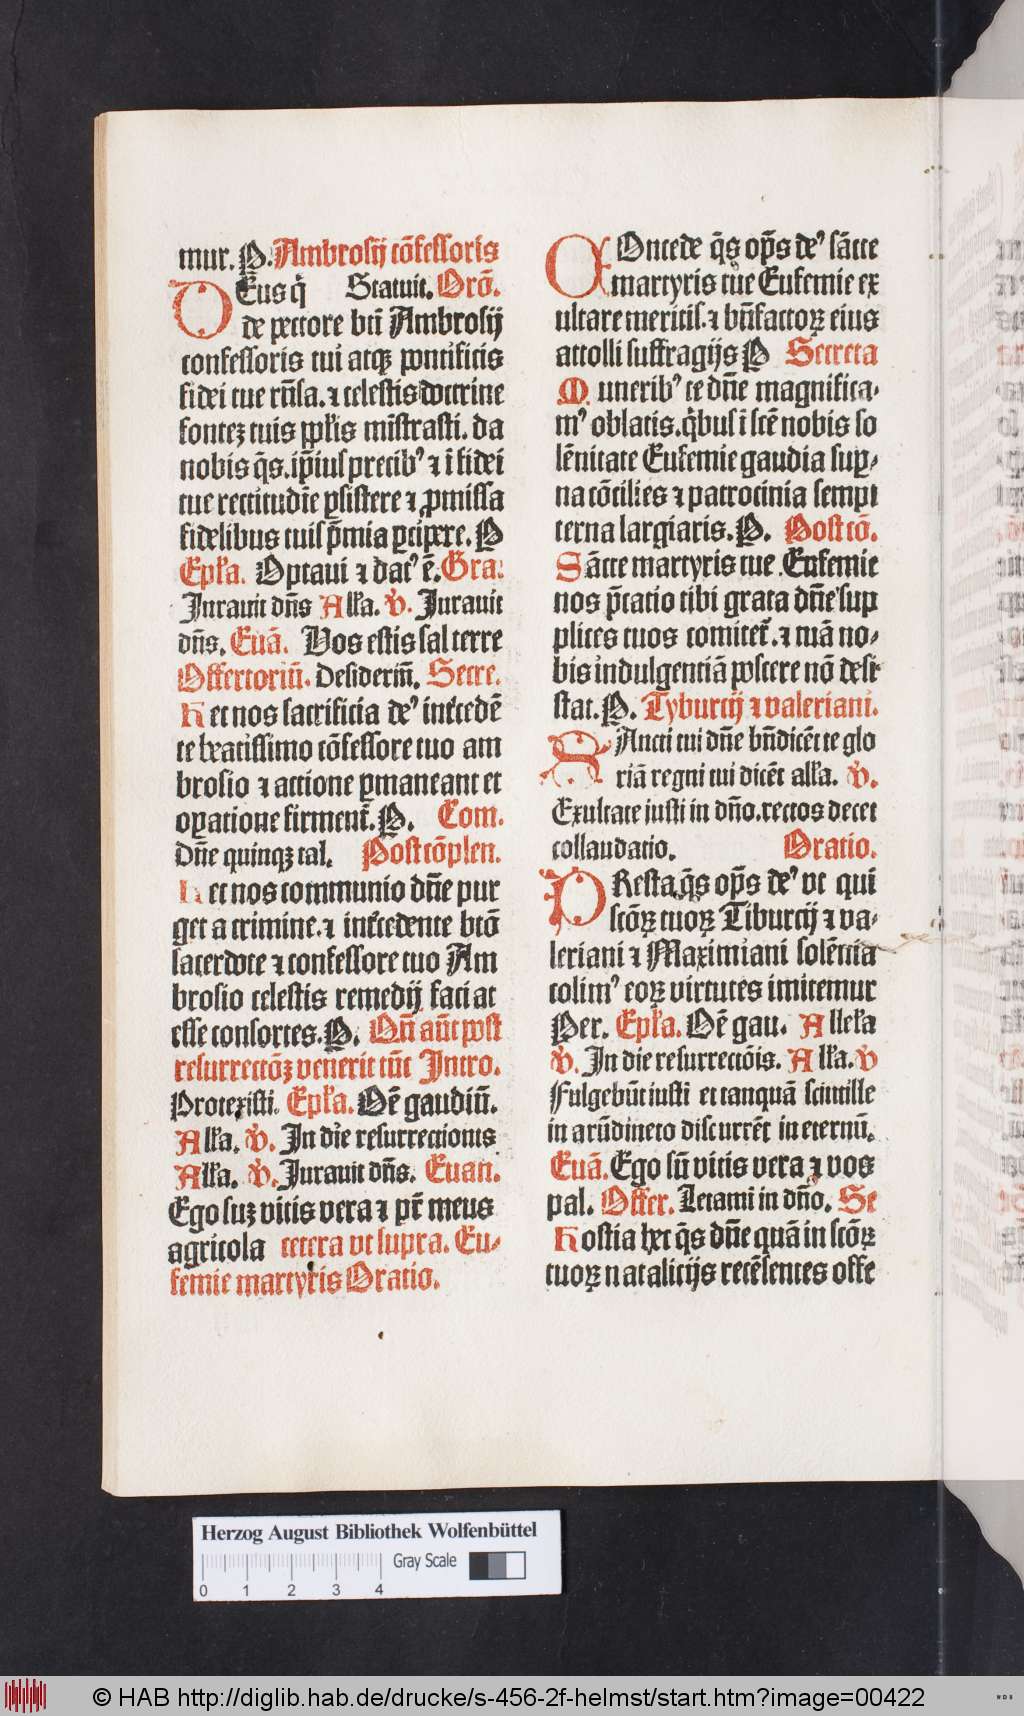 mur. P. Ambrosij cōfessoris
DEus q̄ Statuit. Orō.
de pectore bti̅ Ambrosij
confessoris tui atqꝫ pontificis
fidei tue rn̅sa. ⁊ celestis doctrine
fonteꝫ tuis pp̅lis mi̅strasti. da
nobis q̅s. ip̅ius precibꝰ ⁊ ī fidei
tue rectitudīe ꝑsistere ⁊ ꝓmissa
fidelibus tuis p̅mia ꝑcipere. P
Epl̅a. Optaui ⁊ datꝰ ē. Gra.
Jurauit dn̅s All̅a. v̇. Jurauit
dn̅s. Euā. Vos estis sal terre
Offertoriū. Desideriū. Secre.
Hec nos sacrificia deꝰ int̕cedē
te beatissimo cōfessore tuo am
brosio ⁊ actione ꝑmaneant et
oꝑatione firment̕. P. Com.
Dn̅e quinqꝫ tal. Postcōplen.
Hec nos communio dn̅e pur
get a crimine. ⁊ int̕cedente btō
sacerdote ⁊ confessore tuo Am
brosio celestis remedij faciat
esse consortes. P. Qn̅ aūt post
resurrectōꝫ venerit tūc Intro.
Protexisti. Epl̅a. Oē gaudiū.
All̅a. v̇. In die resurrectionis
All̅a. v̇. Jurauit dn̅s. Euan.
Ego suꝫ vitis vera ⁊ pr̅ meus
agricola cetera vt supra. Eu-
femie martyris Oratio.
COncede q̅s op̅s deꝰ sācte
martyris tue Eufemie ex
ultare meritis. ⁊ bn̅factoꝝ eius
attolli suffragijs P Secreta
Muneribꝰ te dn̅e magnifica-
mꝰ oblatis. q̅bus ī scē nobis so
lēnitate Eufemie gaudia suꝑ-
na cōcilies ⁊ patrocinia sempi
terna largiaris. P. Postcō.
Sācte martyris tue. Eufemie
nos p̅catio tibi grata dn̅e ⁊ sup
plices tuos comitet̕. ⁊ tuā no-
bis indulgentiā poscere nō desi
stat. P. Tyburcij ⁊ valeriani.
SAncti tui dn̅e bn̅dicēt te glo
riā regni tui dicēt all̅a. v̇.
Exultate iusti in dn̅o. rectos decet
collaudatio. Oratio.
PResta q̅s op̅s deꝰ vt qui
scōꝝ tuoꝝ Tiburcij ⁊ va-
leriani ⁊ Maximiani solēnia
colimꝰ eoꝝ virtutes imitemur
Per. Epl̅a. Oē gau. Allel̅a
v̇. In die resurrectōis. All̅a. v̇
Fulgebūt iusti et tanquā scintille
in arūdineto discurrēt in eternū.
Euā. Ego sū vitis vera ⁊ vos
pal. Offer. Letami̅ in dn̅o. Se
Hostia hec q̅s dn̅e quā in scōꝝ
tuoꝝ natalicijs recēsentes offe
Herzog August Bibliothek Wolfenbüttel
Gray Scale
0 1 2 3 4
© HAB http://diglib.hab.de/drucke/s-456-2f-helmst/start.htm?image=00422